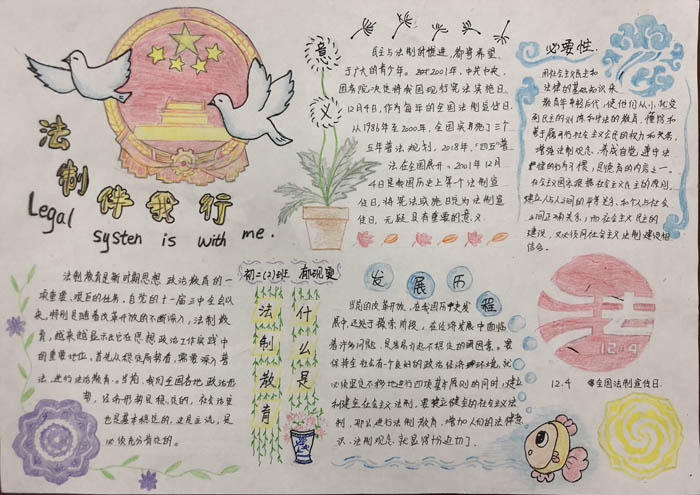 法制伴我行
Legal
systen is with me.
意义
民主与法制的推进,都寄希望
于广大的青少年。 2001年,中共中央、
国务院决定将我国现行宪法实施日
12月4日,作为每年的全国法制宣传日。
从1986年至2000年,全国实施了三个
五年普法规划,2018年,"四五"普
法在全国展开。2001年12月
4日是我国历史上第个法制宣
传日,将宪法实施日定为法制宣
传日,无疑具有重要的意义。
必要性.
用社会主义民主和
法律的基础知识来
教育年轻后代,使他们从小就受
到民主的训练和守法的教育,懂得和
善于履行社会主义公民的权力和义务,
增强法制观念,养成自觉遵守法
律的行为习惯,是德育的内容之一。
在社会主义国家提倡社会主义民主的原则,
建立人与人之间的平等关系,和个人与社会
之间正确关系;而社会主义民主的
建设,又必须同社会主义法制建设相
结合。
法制教育是新时期思想政治教育的一
项重要、艰巨的任务,自党的十一届三中全会以
来,特别是随着改革开放的不断深入,法制教
育,越来越显示出它在思想政治工作实践中
的重要地位。首先从稳定局势看,需要深入普
法,进行法治教育。当前,我们全国各地政治形
势,经济形势是稳定的,社会治安
也是基本稳定的,这是主流,是
必须充分肯定的。
初二(2)班
什么是
法制教育
发展历程
当前的改革开放,在我国历史发
展中,还处于探索阶段,在经济发展中面临
着许多问题,是容易引起不稳定的因素。要
保持全社会有一个良好的政治经济环境,就
必须坚定不移地进行四项基本原则的同时,建立
和健全社会主义法制,要建立健全的社会主义法
制,那么进行法制教育,增加人们的法律意
识、法制观念就显得格外迫切了。
法
12.4
12.4 全国法制宣传日.